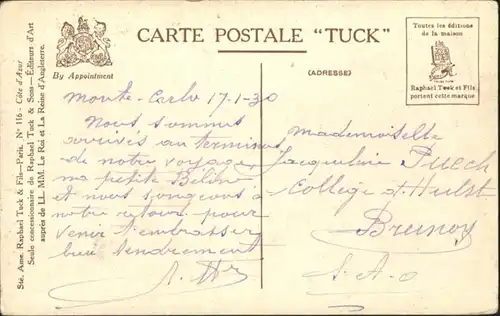 CARTE POSTALE "TUCK"
By Appointment
(ADRESSE)
Toutes les éditions
de la maison
Raphael Tuck et Fils
portent cette marque
Ste. Ame. Raphael Tuck & Fils—Paris. N° 116 - Côte d'Azur
Seule concessionnaire de Raphael Tuck & Sons—Éditeurs d'Art
auprès de LL. MM. Le Roi et La Reine d'Angleterre.
Monte-Carlo 17-1-30
Nous sommes
arrivés au terminus
de notre voyage
ma petite
et nous songeons à
notre retour pour
venir t'embrasser
bien tendrement
Mademoiselle
Jacqueline Puech
Collège d'Hulst
Brunoy
S.-&-O